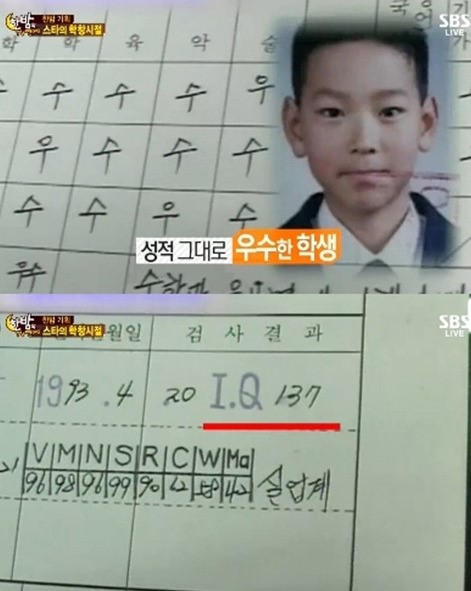 한밤 기획
스타의 학창시절
국
SBS
LIVE
화 학 육 악 술
수 수 수 수 우
우 수 수 수
수 수 우 수
우수
성적 그대로 우수한 학생
한밤 기획
스타의 학창시절
SBS
LIVE
월일 검사결과
1993.4 20 I.Q 137
V M N S R C W Ma
96 98 96 99 90 62 58 42 실업계